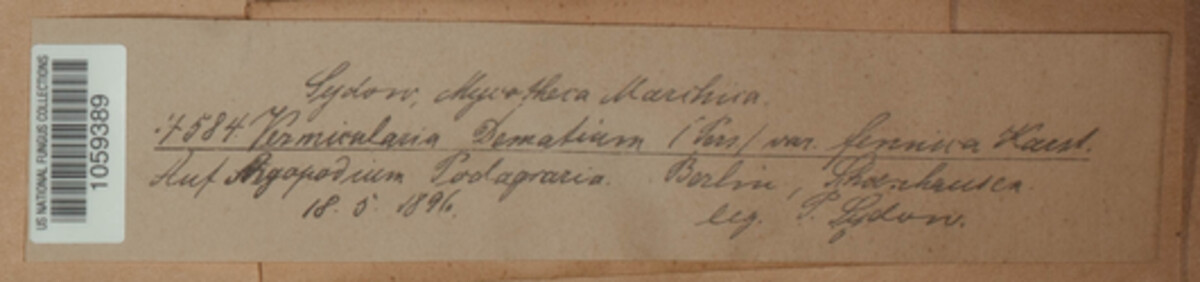 US NATIONAL FUNGUS COLLECTIONS
1059389
Sydow, Mycotheca Marchica.
4584 Vermicularia Dematium (Pers) var. fennica Karst.
Auf Aegopodium Podagraria. Berlin, Schoenhausen.
18. 5. 1896.
leg. P. Sydow.